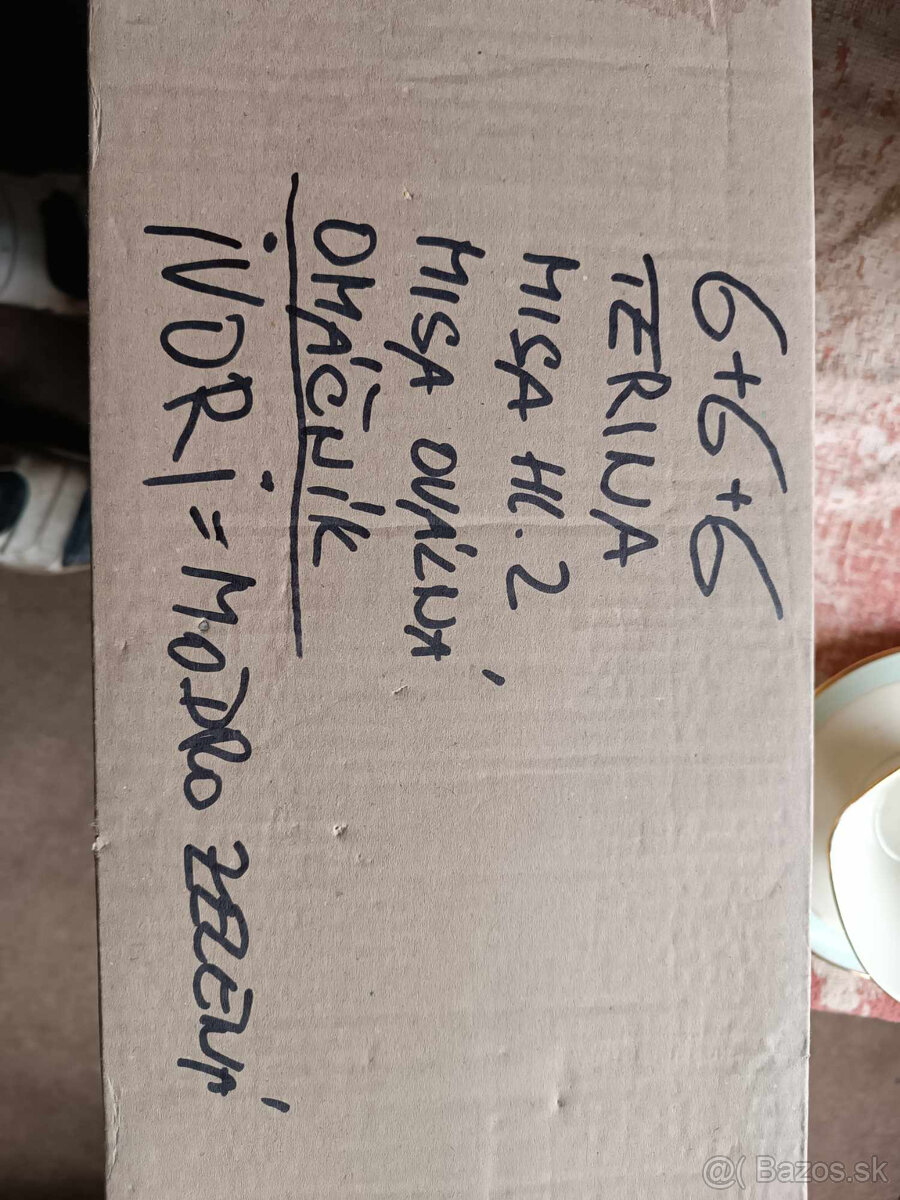 6+6+6
TERINA
MISA HL. 2
MISA OVÁLNA
OMÁČNIK
IVORI = MODRO ZELENÁ
@( Bazos.sk